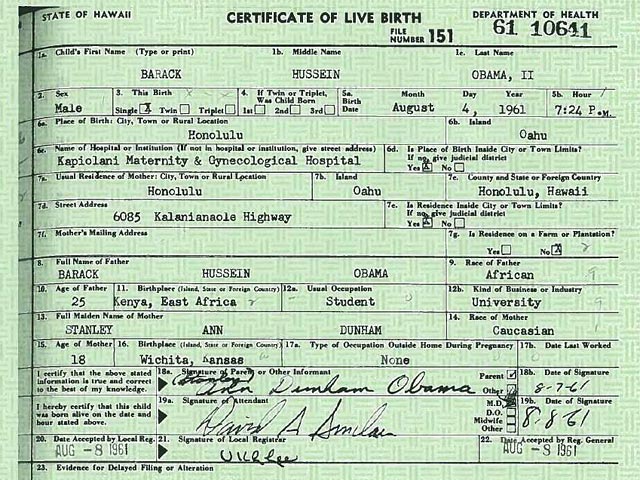 STATE OF HAWAII
CERTIFICATE OF LIVE BIRTH
DEPARTMENT OF HEALTH
FILE NUMBER 151
61 10641
1a. Child's First Name (Type or print) 1b. Middle Name 1c. Last Name
BARACK HUSSEIN OBAMA, II
2. Sex 3. This Birth 4. If Twin or Triplet, Was Child Born 5a. Birth Date Month Day Year 5b. Hour
Male Single X Twin Triplet 1st 2nd 3rd August 4, 1961 7:24 P.M.
6a. Place of Birth: City, Town or Rural Location 6b. Island
Honolulu Oahu
6c. Name of Hospital or Institution (If not in hospital or institution, give street address) 6d. Is Place of Birth Inside City or Town Limits? If no, give judicial district
Kapiolani Maternity & Gynecological Hospital Yes X No
7a. Usual Residence of Mother: City, Town or Rural Location 7b. Island 7c. County and State or Foreign Country
Honolulu Oahu Honolulu, Hawaii
7d. Street Address 7e. Is Residence Inside City or Town Limits? If no, give judicial district
6085 Kalanianaole Highway Yes X No
7f. Mother's Mailing Address 7g. Is Residence on a Farm or Plantation?
Yes No X
8. Full Name of Father 9. Race of Father
BARACK HUSSEIN OBAMA African
10. Age of Father 11. Birthplace (Island, State or Foreign Country) 12a. Usual Occupation 12b. Kind of Business or Industry
25 Kenya, East Africa Student University
13. Full Maiden Name of Mother 14. Race of Mother
STANLEY ANN DUNHAM Caucasian
15. Age of Mother 16. Birthplace (Island, State or Foreign Country) 17a. Type of Occupation Outside Home During Pregnancy 17b. Date Last Worked
18 Wichita, Kansas None
I certify that the above stated information is true and correct to the best of my knowledge. 18a. Signature of Parent or Other Informant Parent Other 18b. Date of Signature
(Stanley) Ann Dunham Obama 8-7-61
I hereby certify that this child was born alive on the date and hour stated above. 19a. Signature of Attendant M.D. D.O. Midwife Other 19b. Date of Signature
David A Sinclair 8-8-61
20. Date Accepted by Local Reg. 21. Signature of Local Registrar 22. Date Accepted by Reg. General
AUG -8 1961 AUG -8 1961
23. Evidence for Delayed Filing or Alteration